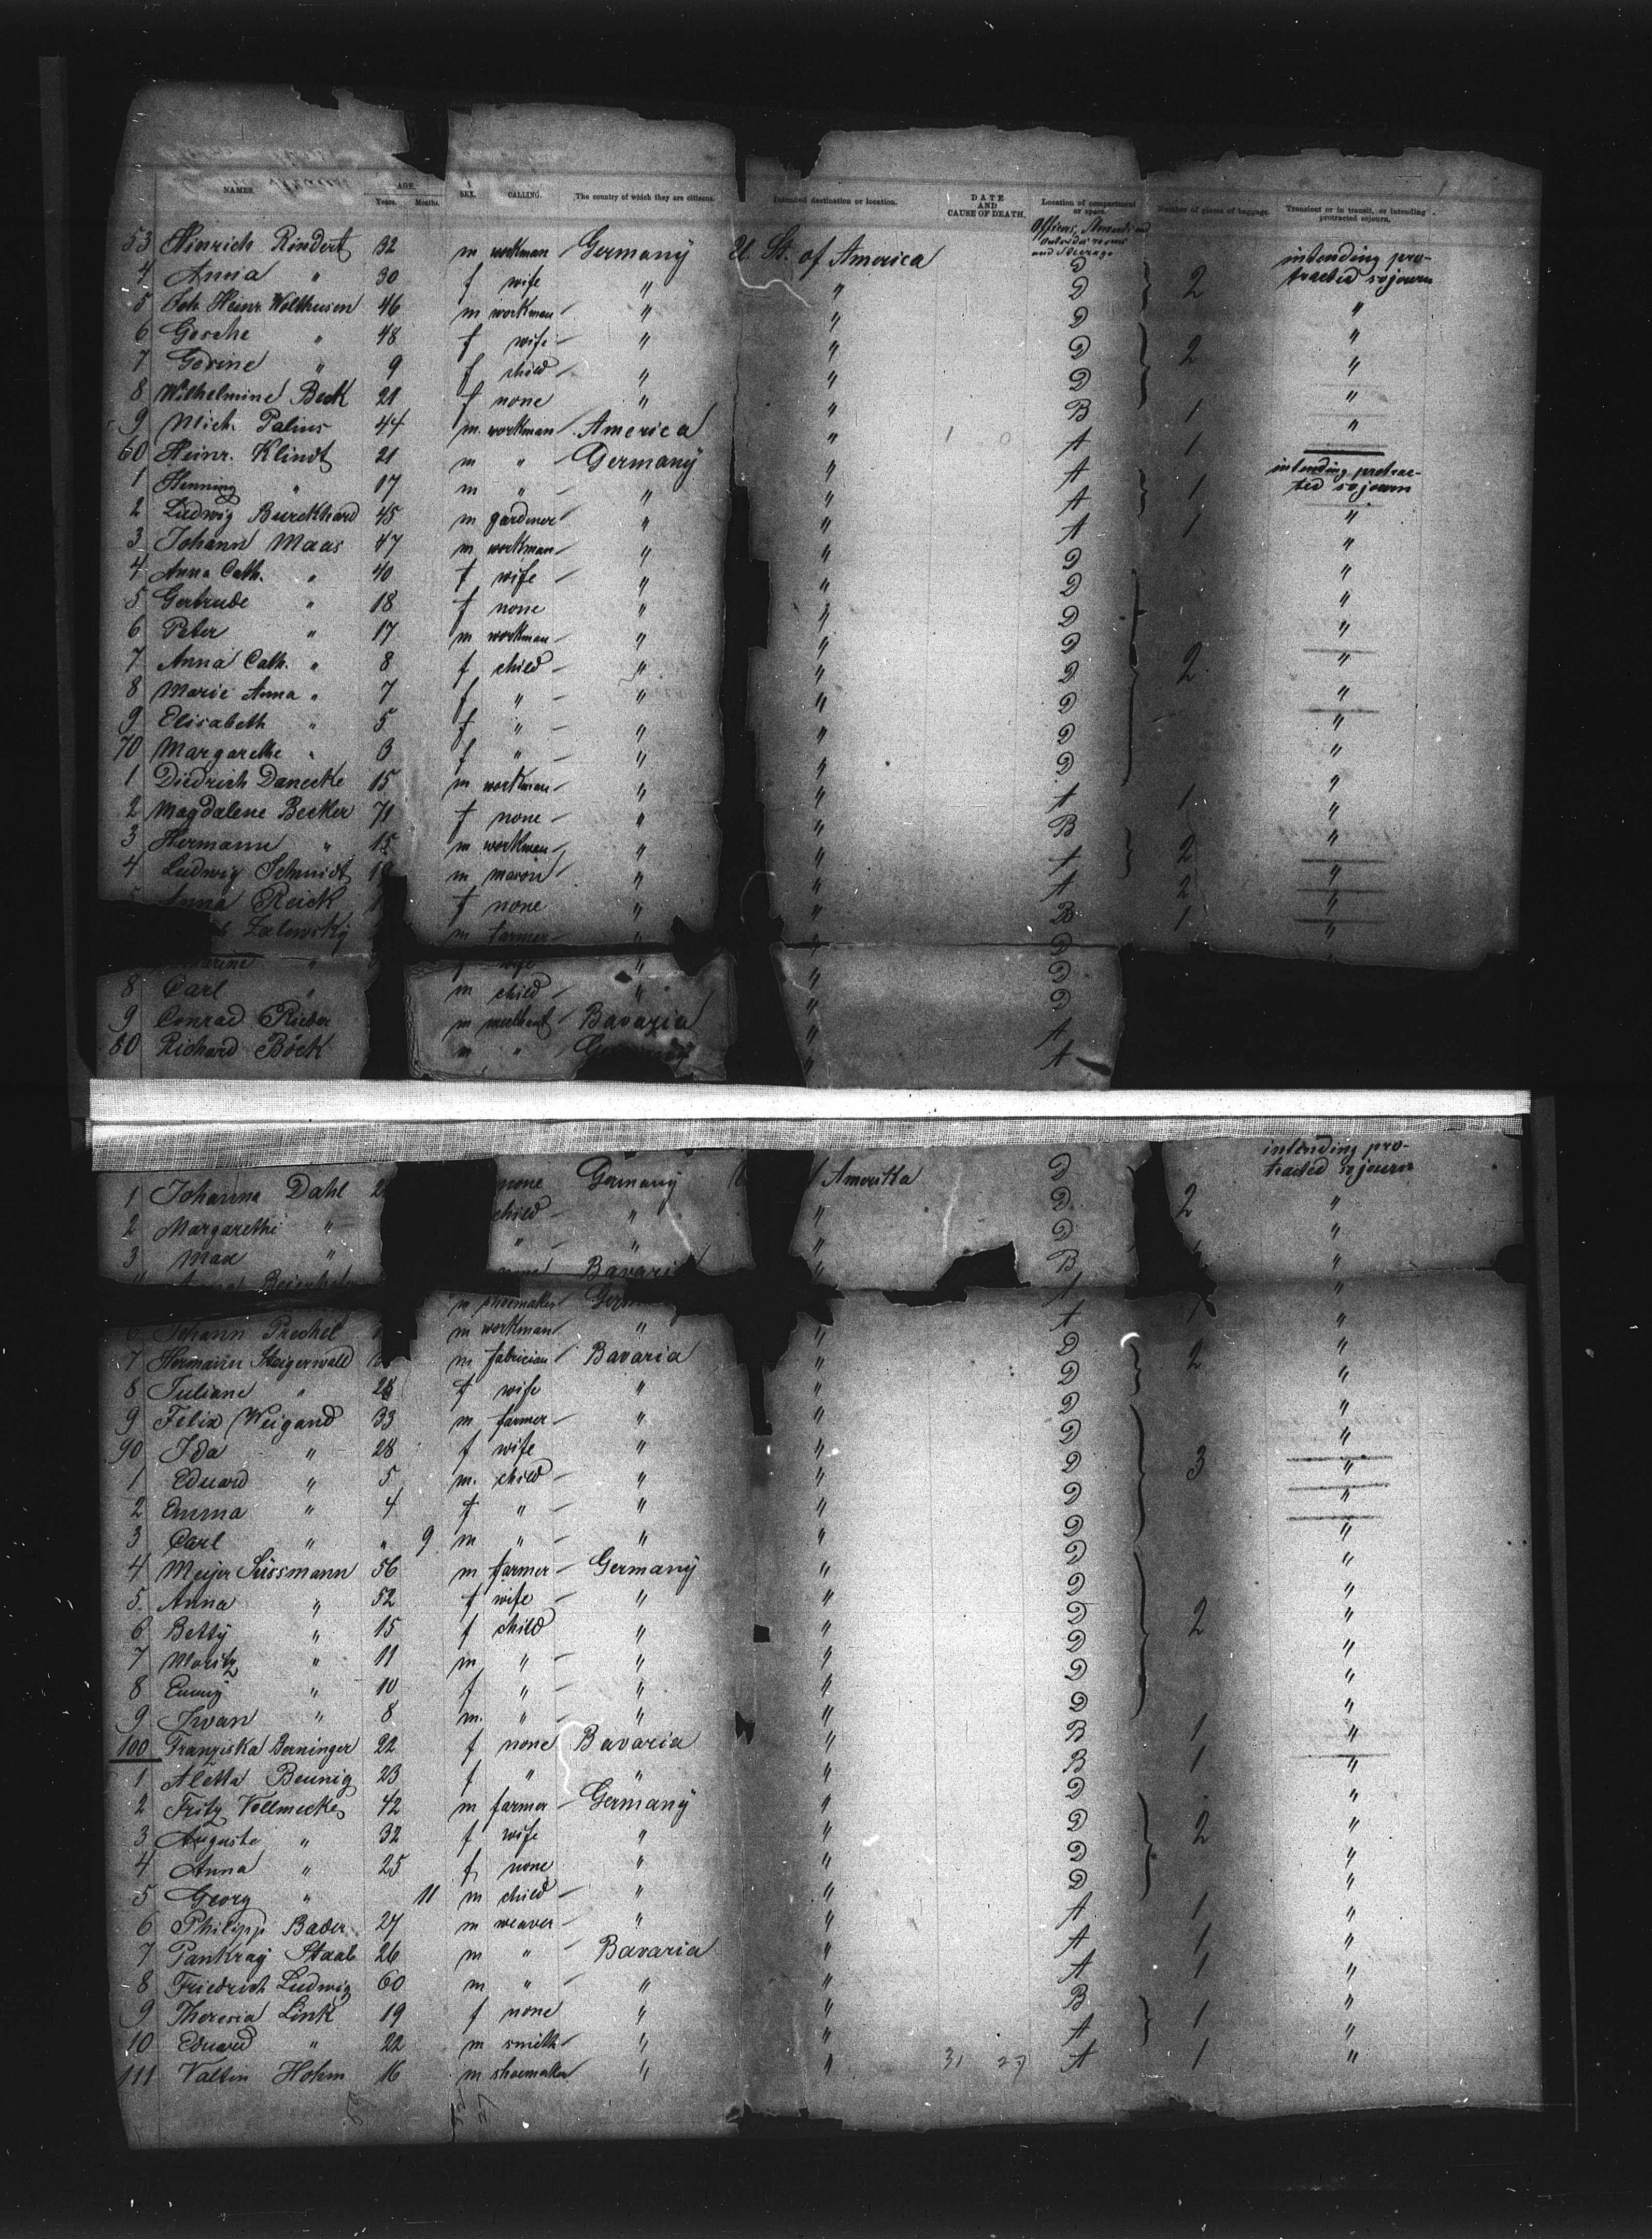 NAMES. AGE. Years. Months. SEX. CALLING. The country of which they are citizens. Intended destination or location. DATE AND CAUSE OF DEATH. Location of compartment or space. Number of pieces of baggage. Transient or in transit, or intending protracted sojourn.
53 Hinrich Rindert 32 m workman Germany U. St. of America D intending protracted sojourn
4 Anna " 30 f wife " " D 2
5 Joh. Heinr. Wolthusen 46 m workman " " D "
6 Gesche " 48 f wife " " D 2 "
7 Gesine " 9 f child " " D "
8 Wilhelmine Beck 21 f none " " B 1 "
9 Mich. Palius 44 m workman America " A 1
60 Heinr. Klindt 21 m " Germany " A intending protracted sojourn
1 Henning " 17 m " " " A 1
2 Ludwig Burckhard 45 m gardener " " A 1 "
3 Johann Maas 47 m workman " " D "
4 Anna Cath. " 40 f wife " " D "
5 Gertrude " 18 f none " " D "
6 Peter " 17 m workman " " D "
7 Anna Cath. " 8 f child " " D 2 "
8 Marie Anna " 7 f " " " D "
9 Elisabeth " 5 f " " " D "
70 Margarethe " 3 f " " " D "
1 Diedrich Danecke 15 m workman " " A 1 "
2 Magdalene Becker 71 f none " " B "
3 Hermann " 15 m workman " " A 2 "
4 Ludwig Schmidt m mason " " A 2 "
Anna Reick f none " " B 1 "
Zalewsky m farmer " " D "
" f wife " " D
8 Carl " m child " " D
9 Conrad Rieber m merchant Bavaria " A
80 Richard Böck m " " A
1 Johanna Dahl none Germany Amerika D intending protracted sojourn
2 Margarethe " child " " D 2 "
3 Max " " " " D "
none Bavaria " B "
m shoemaker A "
Johann Prechel m workman " " A 1 "
7 Hermann Staigerwald m fabrician Bavaria " D 2 "
8 Juliane " 28 f wife " " D "
9 Felix Weigand 33 m farmer " " D "
90 Ida " 28 f wife " " D "
1 Eduard " 5 m. child " " D 3 "
2 Emma " 4 f " " " D "
3 Carl " " 9 m " " " D "
4 Meyer Süssmann 56 m farmer Germany " D "
5. Anna " 52 f wife " " D "
6 Betty " 15 f child " " D 2 "
7 Moritz " 11 m " " " D "
8 Emmy " 10 f " " " D "
9 Iwan " 8 m. " " " D "
100 Franziska Berninger 22 f none Bavaria " B 1 "
1 Aletta Beunig 23 f " " " B 1 "
2 Fritz Vollmecke 42 m farmer Germany " D "
3 Auguste " 32 f wife " " D 2 "
4 Anna " 25 f none " " D "
5 Georg " 11 m child " " D "
6 Philipp Bader 27 m weaver " " A 1 "
7 Pankraz Staab 26 m " Bavaria " A 1 "
8 Friedrich Ludwig 60 m " " " A 1 "
9 Theresia Link 19 f none " " B 1 "
10 Eduard " 22 m smith " " A "
111 Valtin Hohm 16 m shoemaker " " 31 27 A 1 "